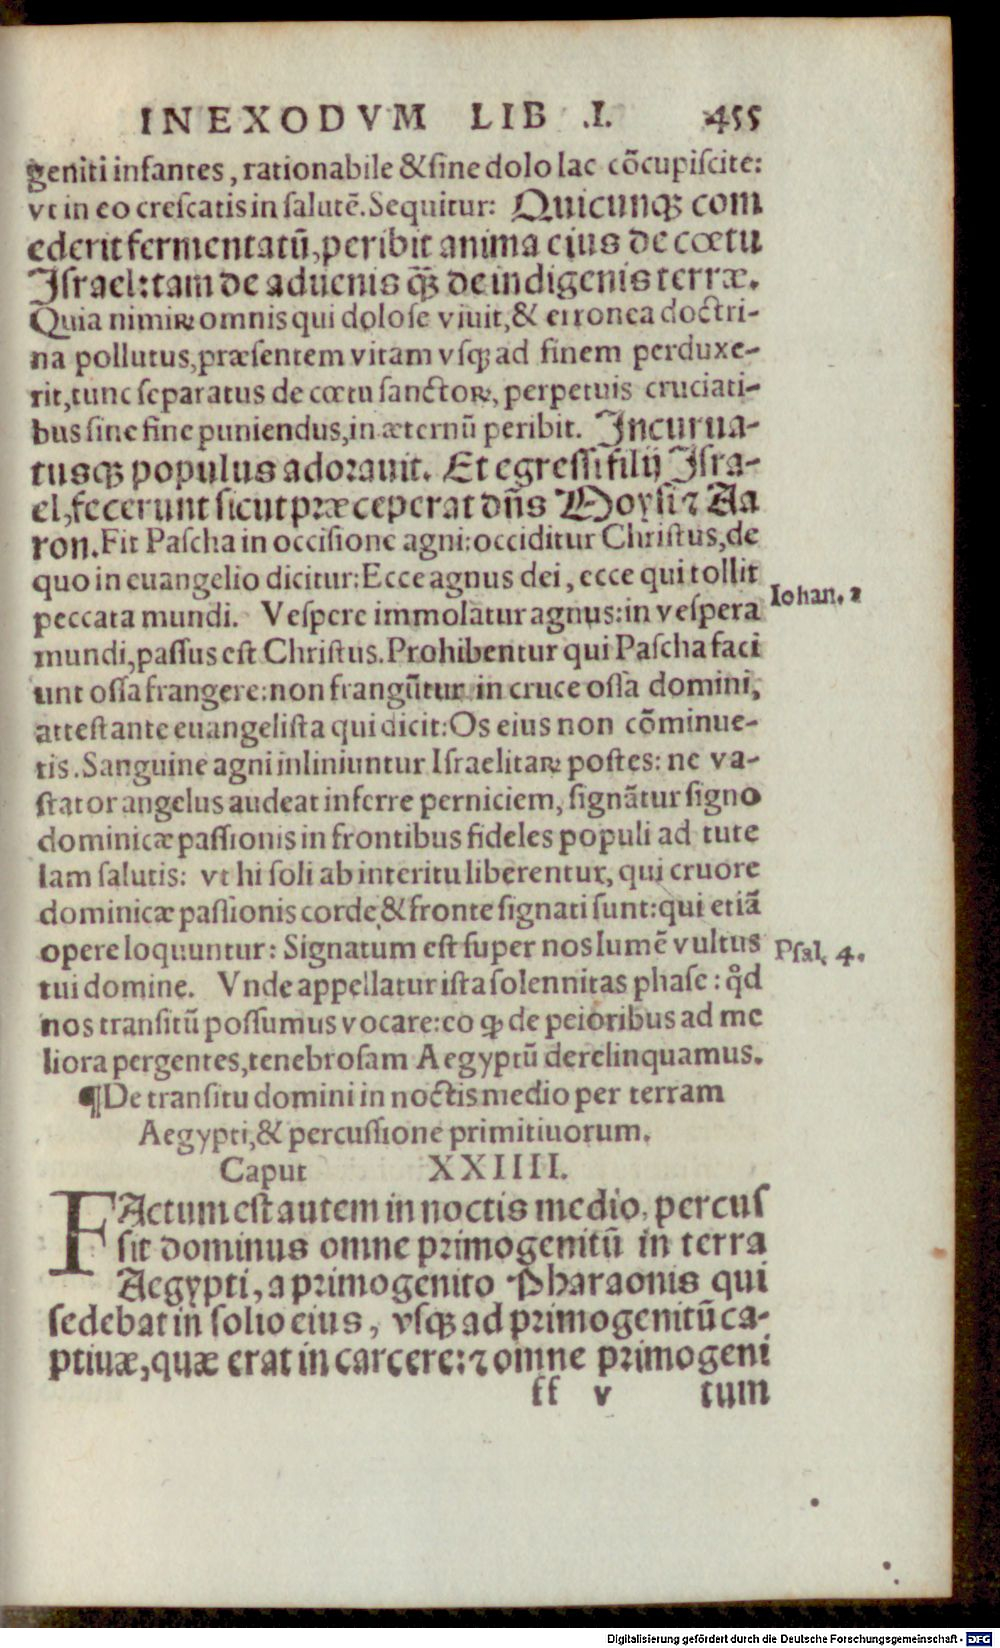 IN EXODVM LIB .I. 455
geniti infantes, rationabile & sine dolo lac cõcupiscite:
vt in eo crescatis in salutẽ. Sequitur: Quicunqꝫ com
ederit fermentatũ, peribit anima eius de cœtu
Israel: tam de aduenis qꝫ̃ de indigenis terræ.
Quia nimiꝝ omnis qui dolose viuit, & erronea doctri-
na pollutus, præsentem vitam vsqꝫ ad finem perduxe-
rit, tunc separatus de cœtu sanctoꝝ, perpetuis cruciati-
bus sine fine puniendus, in æternũ peribit. Incurua-
tusqꝫ populus adorauit. Et egressi filij Isra-
el, fecerunt sicut præceperat dñs Moysi ⁊ Aa
ron. Fit Pascha in occisione agni: occiditur Christus, de
quo in euangelio dicitur: Ecce agnus dei, ecce qui tollit
peccata mundi. Vespere immolatur agnus: in vespera
Iohan. 2
mundi, passus est Christus. Prohibentur qui Pascha faci
unt ossa frangere: non frangũtur in cruce ossa domini,
attestante euangelista qui dicit: Os eius non cõminue-
tis. Sanguine agni inliniuntur Israelitaꝝ postes: ne va-
stator angelus audeat inferre perniciem, signãtur signo
dominicæ passionis in frontibus fideles populi ad tute
lam salutis: vt hi soli ab interitu liberentur, qui cruore
dominicæ passionis corde & fronte signati sunt: qui etiã
opere loquuntur: Signatum est super nos lumẽ vultus
Psal. 4.
tui domine. Vnde appellatur ista solennitas phase: qͦd
nos transitũ possumus vocare: eo ꝙ de peioribus ad me
liora pergentes, tenebrosam Aegyptũ derelinquamus.
¶De transitu domini in noctis medio per terram
Aegypti, & percussione primitiuorum.
Caput XXIIII.
FActum est autem in noctis medio, percus
sit dominus omne primogenitũ in terra
Aegypti, a primogenito Pharaonis qui
sedebat in solio eius, vsqꝫ ad primogenitũ ca-
ptiuæ, quæ erat in carcere: ⁊ omne primogeni
ff v tum
Digitalisierung gefördert durch die Deutsche Forschungsgemeinschaft - DFG